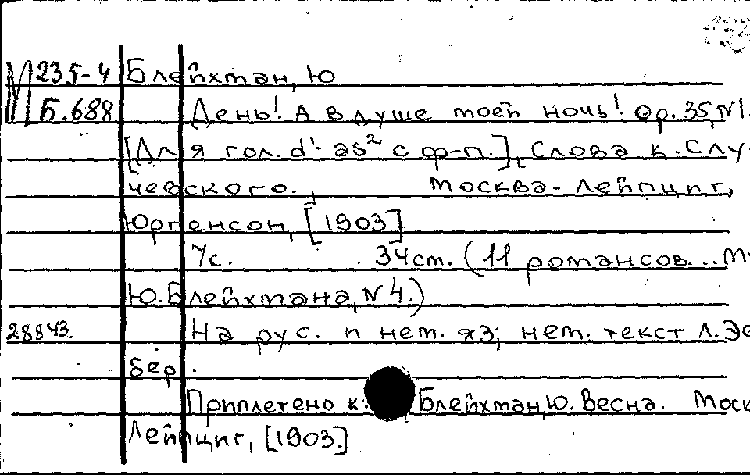 М 235-4 Блейхтан, Ю
Б.688 День! А в душе моей ночь! Ор. 35, N1.
[Для гол. d¹-as² с ф-п.], Слова К. Слу-
чевского. Москва-Лейпциг,
Юргенсон, [1903]
7с. 34см. (11 романсов...
Ю. Блейхмана, N4.)
28843. На рус. и нем. яз; нем. текст Л. Эс
бер.
Приплетено к: Блейхман, Ю. Весна. Моск
Лейпциг, [1903.]